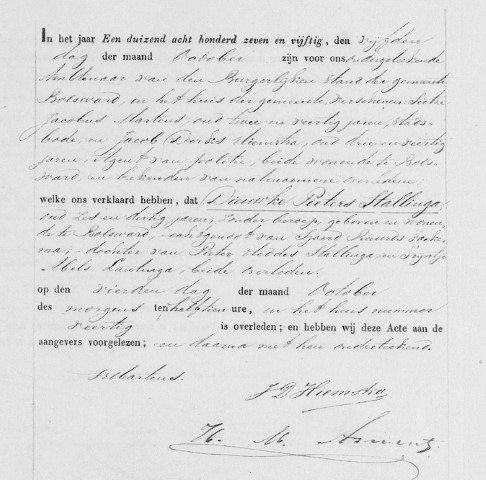 In het jaar Een duizend acht honderd zeven en vijftig, den vijfden
dag der maand October zijn voor ons ondergeteekende
Ambtenaar van den Burgerlijken stand der gemeente
Bolsward, in het huis der gemeente, verschenen: Sietse
Jacobus Martens, oud twee en veertig jaren, stads-
bode, en Jacob Dirks Hiemstra, oud drie en veertig
jaren, Agent van politie, beide wonende te Bols-
ward, en bekenden van na te noemene overledene,
welke ons verklaard hebben, dat Dieuwke Pieters Stallinga,
oud zes en dertig jaren, zonder beroep, geboren en wonen-
de te Bolsward, echtgenoot van Sjoerd Ruurds
ma, dochter van Pieter Stallinga, en Trijntje
Abels Lantinga, beide overleden.
op den vierden dag der maand October
des morgens ten half tien ure, in het huis nummer
veertig is overleden; en hebben wij deze Acte aan de
aangevers voorgelezen; en daarna met hen onderteekend.
Martens.
J D Hiemstra
H. M.